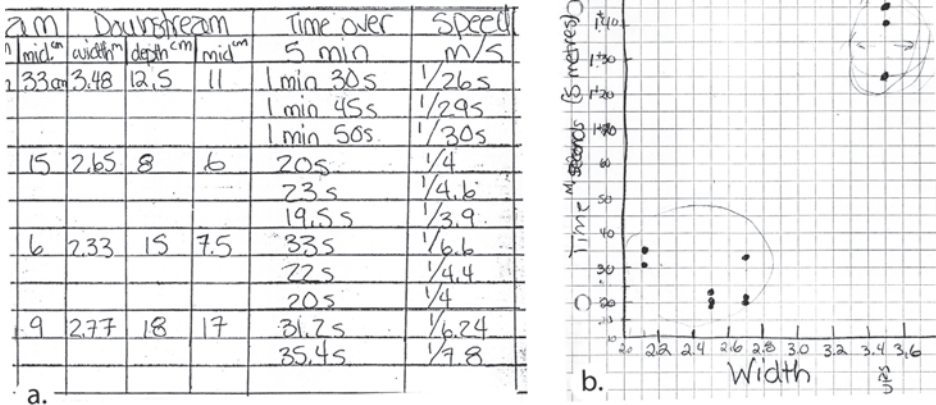 am Downstream Time over Speed
mid. cm width m depth cm mid cm 5 min m/s
33cm 3.48 12.5 11 1 min 30s 1/26s
1 min 45s 1/29s
1 min 50s 1/30s
15 2.65 8 6 20s 1/4
23s 1/4.6
19.5s 1/3.9
6 2.33 15 7.5 33s 1/6.6
22s 1/4.4
20s 1/4
9 2.77 18 17 31.2s 1/6.24
35.4s 1/7.8
a.
Time M, seconds (5 metres)
1+40
1+30
1+20
60
50
40
30
20
15
10
2.0 2.2 2.4 2.6 2.8 3.0 3.2 3.4 3.6
Width
b.